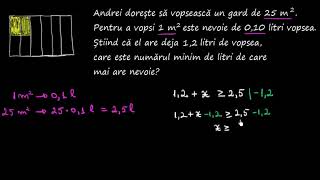 Andrei dorește să vopsească un gard de 25 m².
Pentru a vopsi 1 m² este nevoie de 0,10 litri vopsea.
Știind că el are deja 1,2 litri de vopsea,
care este numărul minim de litri de care
mai are nevoie?
1 m² → 0,1 l
25 m² → 25·0,1 l = 2,5 l
1,2 + x ≥ 2,5 |-1,2
1,2 + x -1,2 ≥ 2,5 -1,2
x ≥